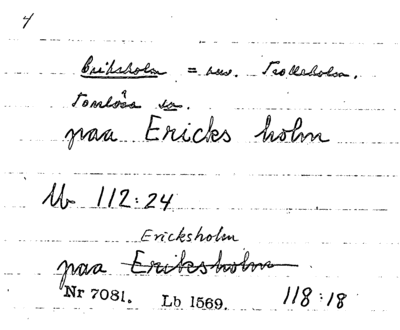 4
Eriksholm = nuv. Trolleholm.
Torrlösa sn.
paa Ericks holm
Mb 112:24
Ericksholm
paa Eriksholm
Nr 7081. Lb 1569. 118:18